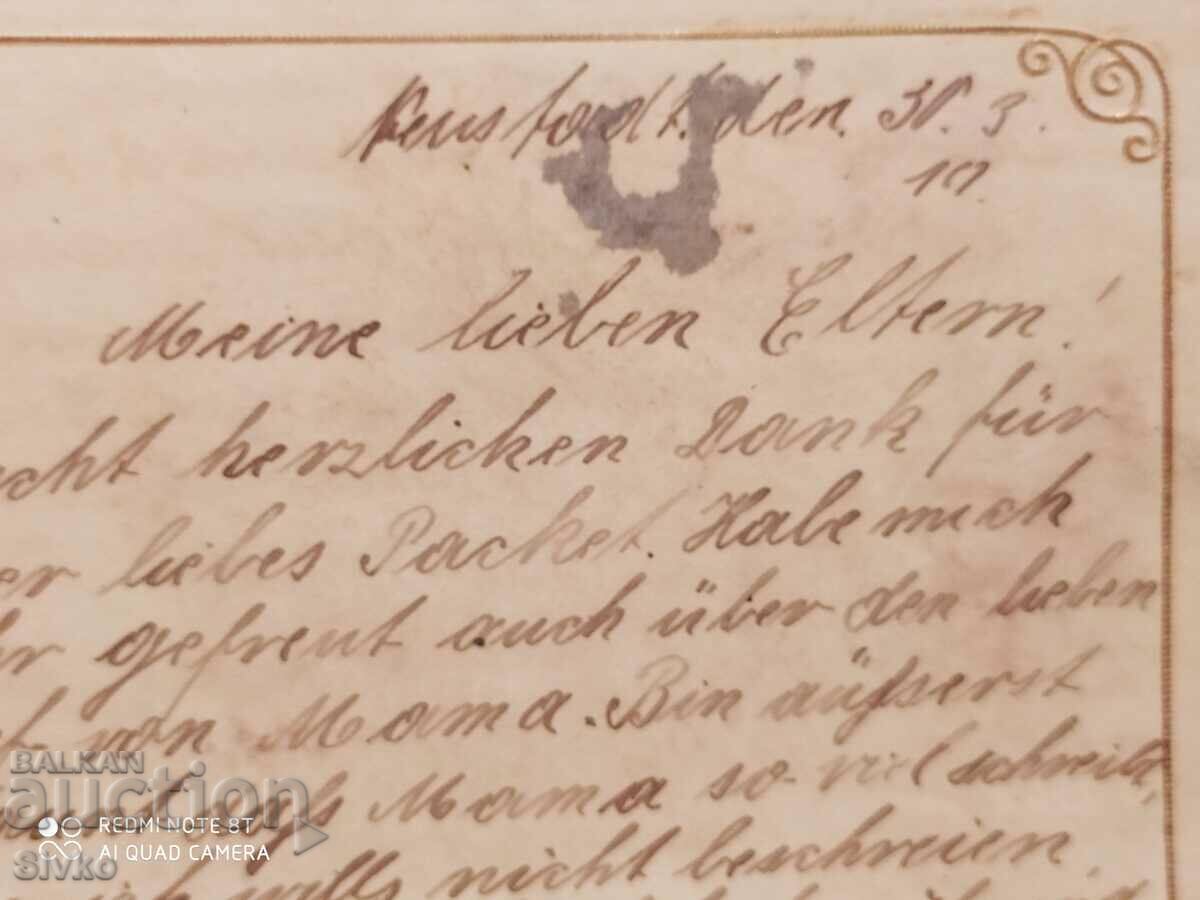 Neustadt, den. 30. 3.
10.
Meine lieben Eltern!
echt herzlichen Dank für
er liebes Packet. Habe mich
hr gefreut auch über den lieben
von Mama. Bin äußerst
daß Mama so viel schreibt,
ich wills nicht beschreien
BALKAN
auction
REDMI NOTE 8T
AI QUAD CAMERA
Sivko